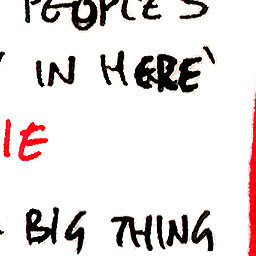 PEOPLE'S
IN HERE'
IE
BIG THING